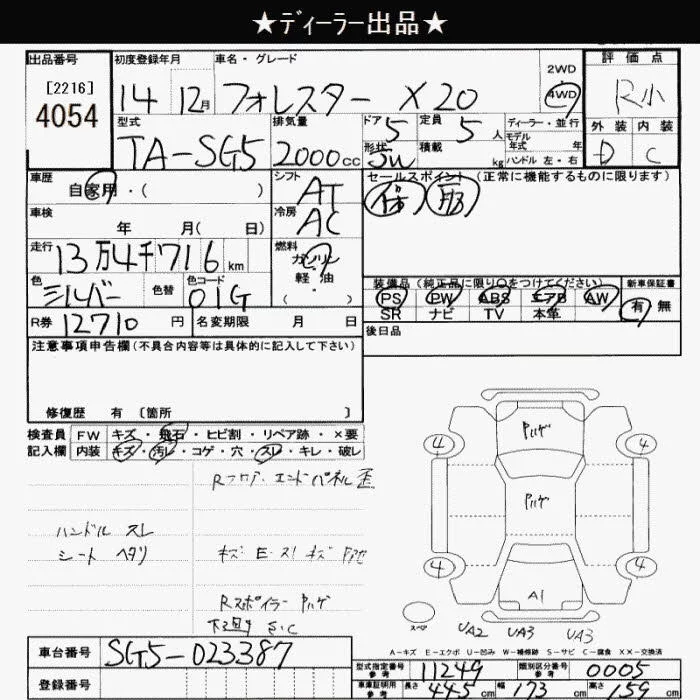 ★ディーラー出品★
出品番号
[2216]
4054
初度登録年月
14 12月
車名・グレード
フォレスター X20
2WD
4WD
評価点
R小
外装 内装
D C
型式
TA-SG5
排気量
2000cc
ドア 5
定員 5人
形状 SW
積載 kg
ディーラー・並行
モデル年式 年
ハンドル 左・右
車歴
自家用・( )
シフト
AT
車検
年 月( 日)
冷房
AC
走行
13万4千716km
燃料
ガソリン
軽油
( ・ )
色
シルバー
色替
色コード
01G
R券 12710円
名変期限 月 日
セールスポイント(正常に機能するものに限ります)
装備品(純正品に限り○をつけてください)
PS PW ABS エアB AW
SR ナビ TV 本革
新車保証書
有 無
後日品
注意事項申告欄(不具合内容等は具体的に記入して下さい)
修復歴 有 〔箇所 〕
検査員 FW キズ・飛石・ヒビ割・リペア跡・×要
記入欄 内装 キズ・汚レ・コゲ・穴・スレ・キレ・破レ
ハンドル スレ
シート ヘタリ
エンドパネル 歪
Rスポイラー Pハゲ
Pハゲ
Pハゲ
A1
4
4
4
4
スペア
UA2 UA3 UA3
A-キズ E-エクボ U-凹み W-補修跡 S-サビ C-腐食 XX-交換済
車台番号 SG5-023387
登録番号
型式指定番号 参考 11249
類別区分番号 参考 0005
車庫証明用 参考 長さ 445cm 幅 173cm 高さ 159cm